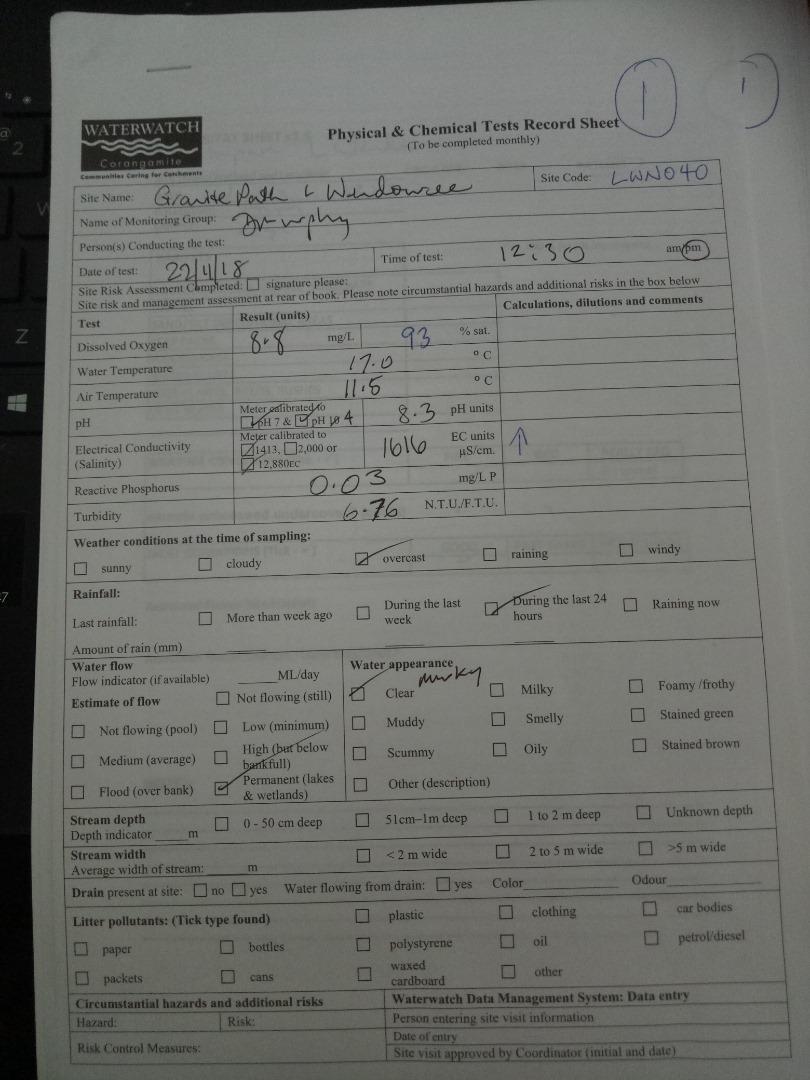 1 1
WATERWATCH
Corangamite
Communities Caring for Catchments
Physical & Chemical Tests Record Sheet
(To be completed monthly)
Site Name: Granite Path L Wendouree Site Code: LWN040
Name of Monitoring Group: D Murphy
Person(s) Conducting the test:
Date of test: 22/4/18 Time of test: 12:30 am/pm
Site Risk Assessment Completed: signature please:
Site risk and management assessment at rear of book. Please note circumstantial hazards and additional risks in the box below
Test Result (units) Calculations, dilutions and comments
Dissolved Oxygen 8.8 mg/L 93 % sat.
Water Temperature 17.0 °C
Air Temperature 11.5 °C
pH Meter calibrated to
pH 7 & pH 10 4 8.3 pH units
Electrical Conductivity (Salinity) Meter calibrated to
1413, 2,000 or
12,880EC 1616 EC units
µS/cm. ↑
Reactive Phosphorus 0.03 mg/L P
Turbidity 6.76 N.T.U./F.T.U.
Weather conditions at the time of sampling:
sunny cloudy overcast raining windy
Rainfall:
Last rainfall: More than week ago During the last week During the last 24 hours Raining now
Amount of rain (mm)
Water flow
Flow indicator (if available) ML/day
Estimate of flow Not flowing (still)
Not flowing (pool) Low (minimum)
Medium (average) High (but below bankfull)
Flood (over bank) Permanent (lakes & wetlands)
Water appearance
murky
Clear Milky Foamy /frothy
Muddy Smelly Stained green
Scummy Oily Stained brown
Other (description)
Stream depth
Depth indicator m 0 - 50 cm deep 51cm–1m deep 1 to 2 m deep Unknown depth
Stream width
Average width of stream: m < 2 m wide 2 to 5 m wide >5 m wide
Drain present at site: no yes Water flowing from drain: yes Color Odour
Litter pollutants: (Tick type found) plastic clothing car bodies
paper bottles polystyrene oil petrol/diesel
packets cans waxed cardboard other
Circumstantial hazards and additional risks
Hazard: Risk:
Risk Control Measures:
Waterwatch Data Management System: Data entry
Person entering site visit information
Date of entry
Site visit approved by Coordinator (initial and date)